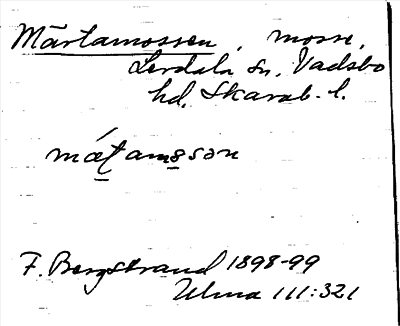 Märtamossen, mosse,
Lerdala sn, Vadsbo
hd. Skarab. l.
mǽt̠amo̠sən
F. Bergstrand 1898-99
Ulma 111:321